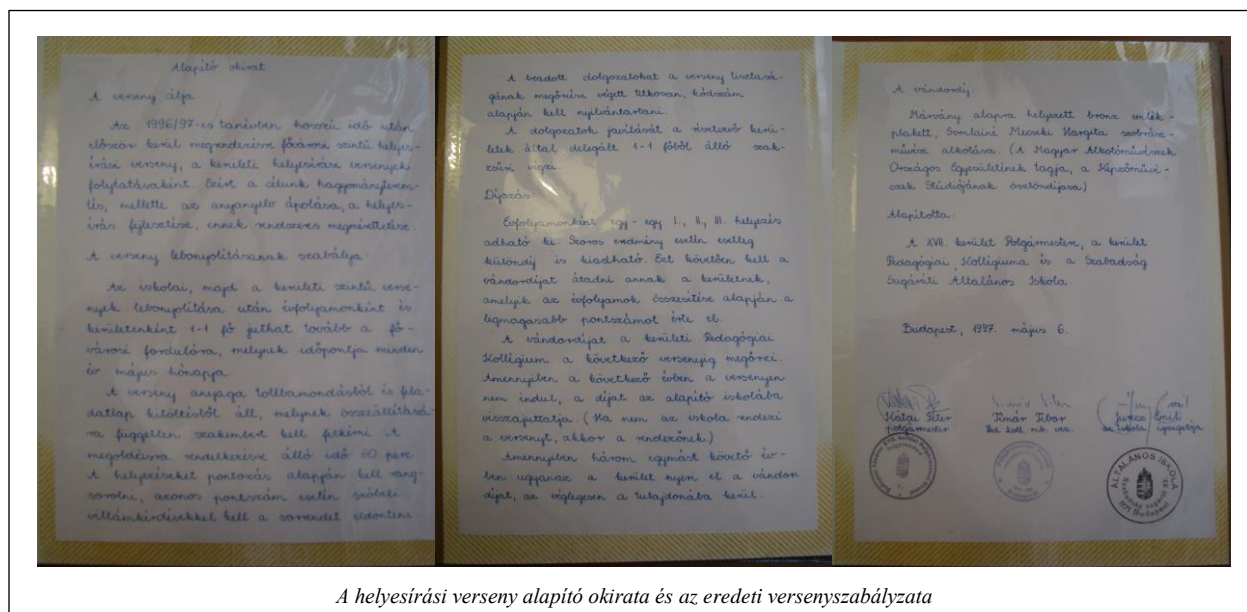 Alapító okirat
A verseny célja:
Az 1996/97-es tanévben hosszú idő után
először kerül megrendezésre fővárosi szintű helyes-
írási verseny, a kerületi helyesírási versenyek
folytatásaként. Ezért a célunk hagyományterem-
tés, mellette az anyanyelv ápolása, a helyes-
írás fejlesztése, ennek rendszeres megmérettetése.
A verseny lebonyolításának szabályai:
Az iskolai, majd a kerületi szintű verse-
nyek lebonyolítása után évfolyamonként és
kerületenként 1-1 fő juthat tovább a fő-
városi fordulóra, melynek időpontja minden
év május hónapja.
A verseny anyaga tollbamondásból és fela-
datlap kitöltésből áll, melynek összeállításá-
ra független szakembert kell felkérni. A
megoldásra rendelkezésre álló idő 60 perc.
A helyezéseket pontozás alapján kell rang-
sorolni, azonos pontszám esetén szóbeli
villámkérdésekkel kell a sorrendet eldönteni.
A beadott dolgozatokat a verseny tisztasá-
gának megőrzése végett titkosan, kódszám
alapján kell nyilvántartani.
A dolgozatok javítását a résztvevő kerü-
letek által delegált 1-1 főből álló szak-
zsűri végzi.
Díjazás:
Évfolyamonként egy-egy I., II., III. helyezés
adható ki. Szoros eredmény esetén esetleg
különdíj is kiadható. Ezt követően kell a
vándordíjat átadni annak a kerületnek,
amelyik az évfolyamok összesítése alapján a
legmagasabb pontszámot érte el.
A vándordíjat a kerületi Pedagógiai
Kollégium a következő versenyig megőrzi.
Amennyiben a következő évben a versenyen
nem indul, a díjat az alapító iskolába
visszajuttatja. (Ha nem az iskola rendezi
a versenyt, akkor a rendezőnek.)
Amennyiben három egymást követő év-
ben ugyanaz a kerület nyeri el a vándor
díjat, az véglegesen a tulajdonába kerül.
A vándordíj:
Márvány alapra helyezett bronz emlék-
plakett, Somlainé Mecski Hargita szobrász-
művész alkotása. (A Magyar Alkotóművészek
Országos Egyesületének tagja, a Képzőművé-
szek Stúdiójának ösztöndíjasa)
Alapította:
A XVII. kerület Polgármestere, a kerület
Pedagógiai Kollégiuma és a Szabadság
Sugárúti Általános Iskola.
Budapest, 1997. május 6.
Hátai Péter
polgármester
Tímár Tibor
ked. koll. mb. vez.
Juricz Emil
az iskola igazgatója
ÁLTALÁNOS ISKOLA
1171 Budapest
A helyesírási verseny alapító okirata és az eredeti versenyszabályzata